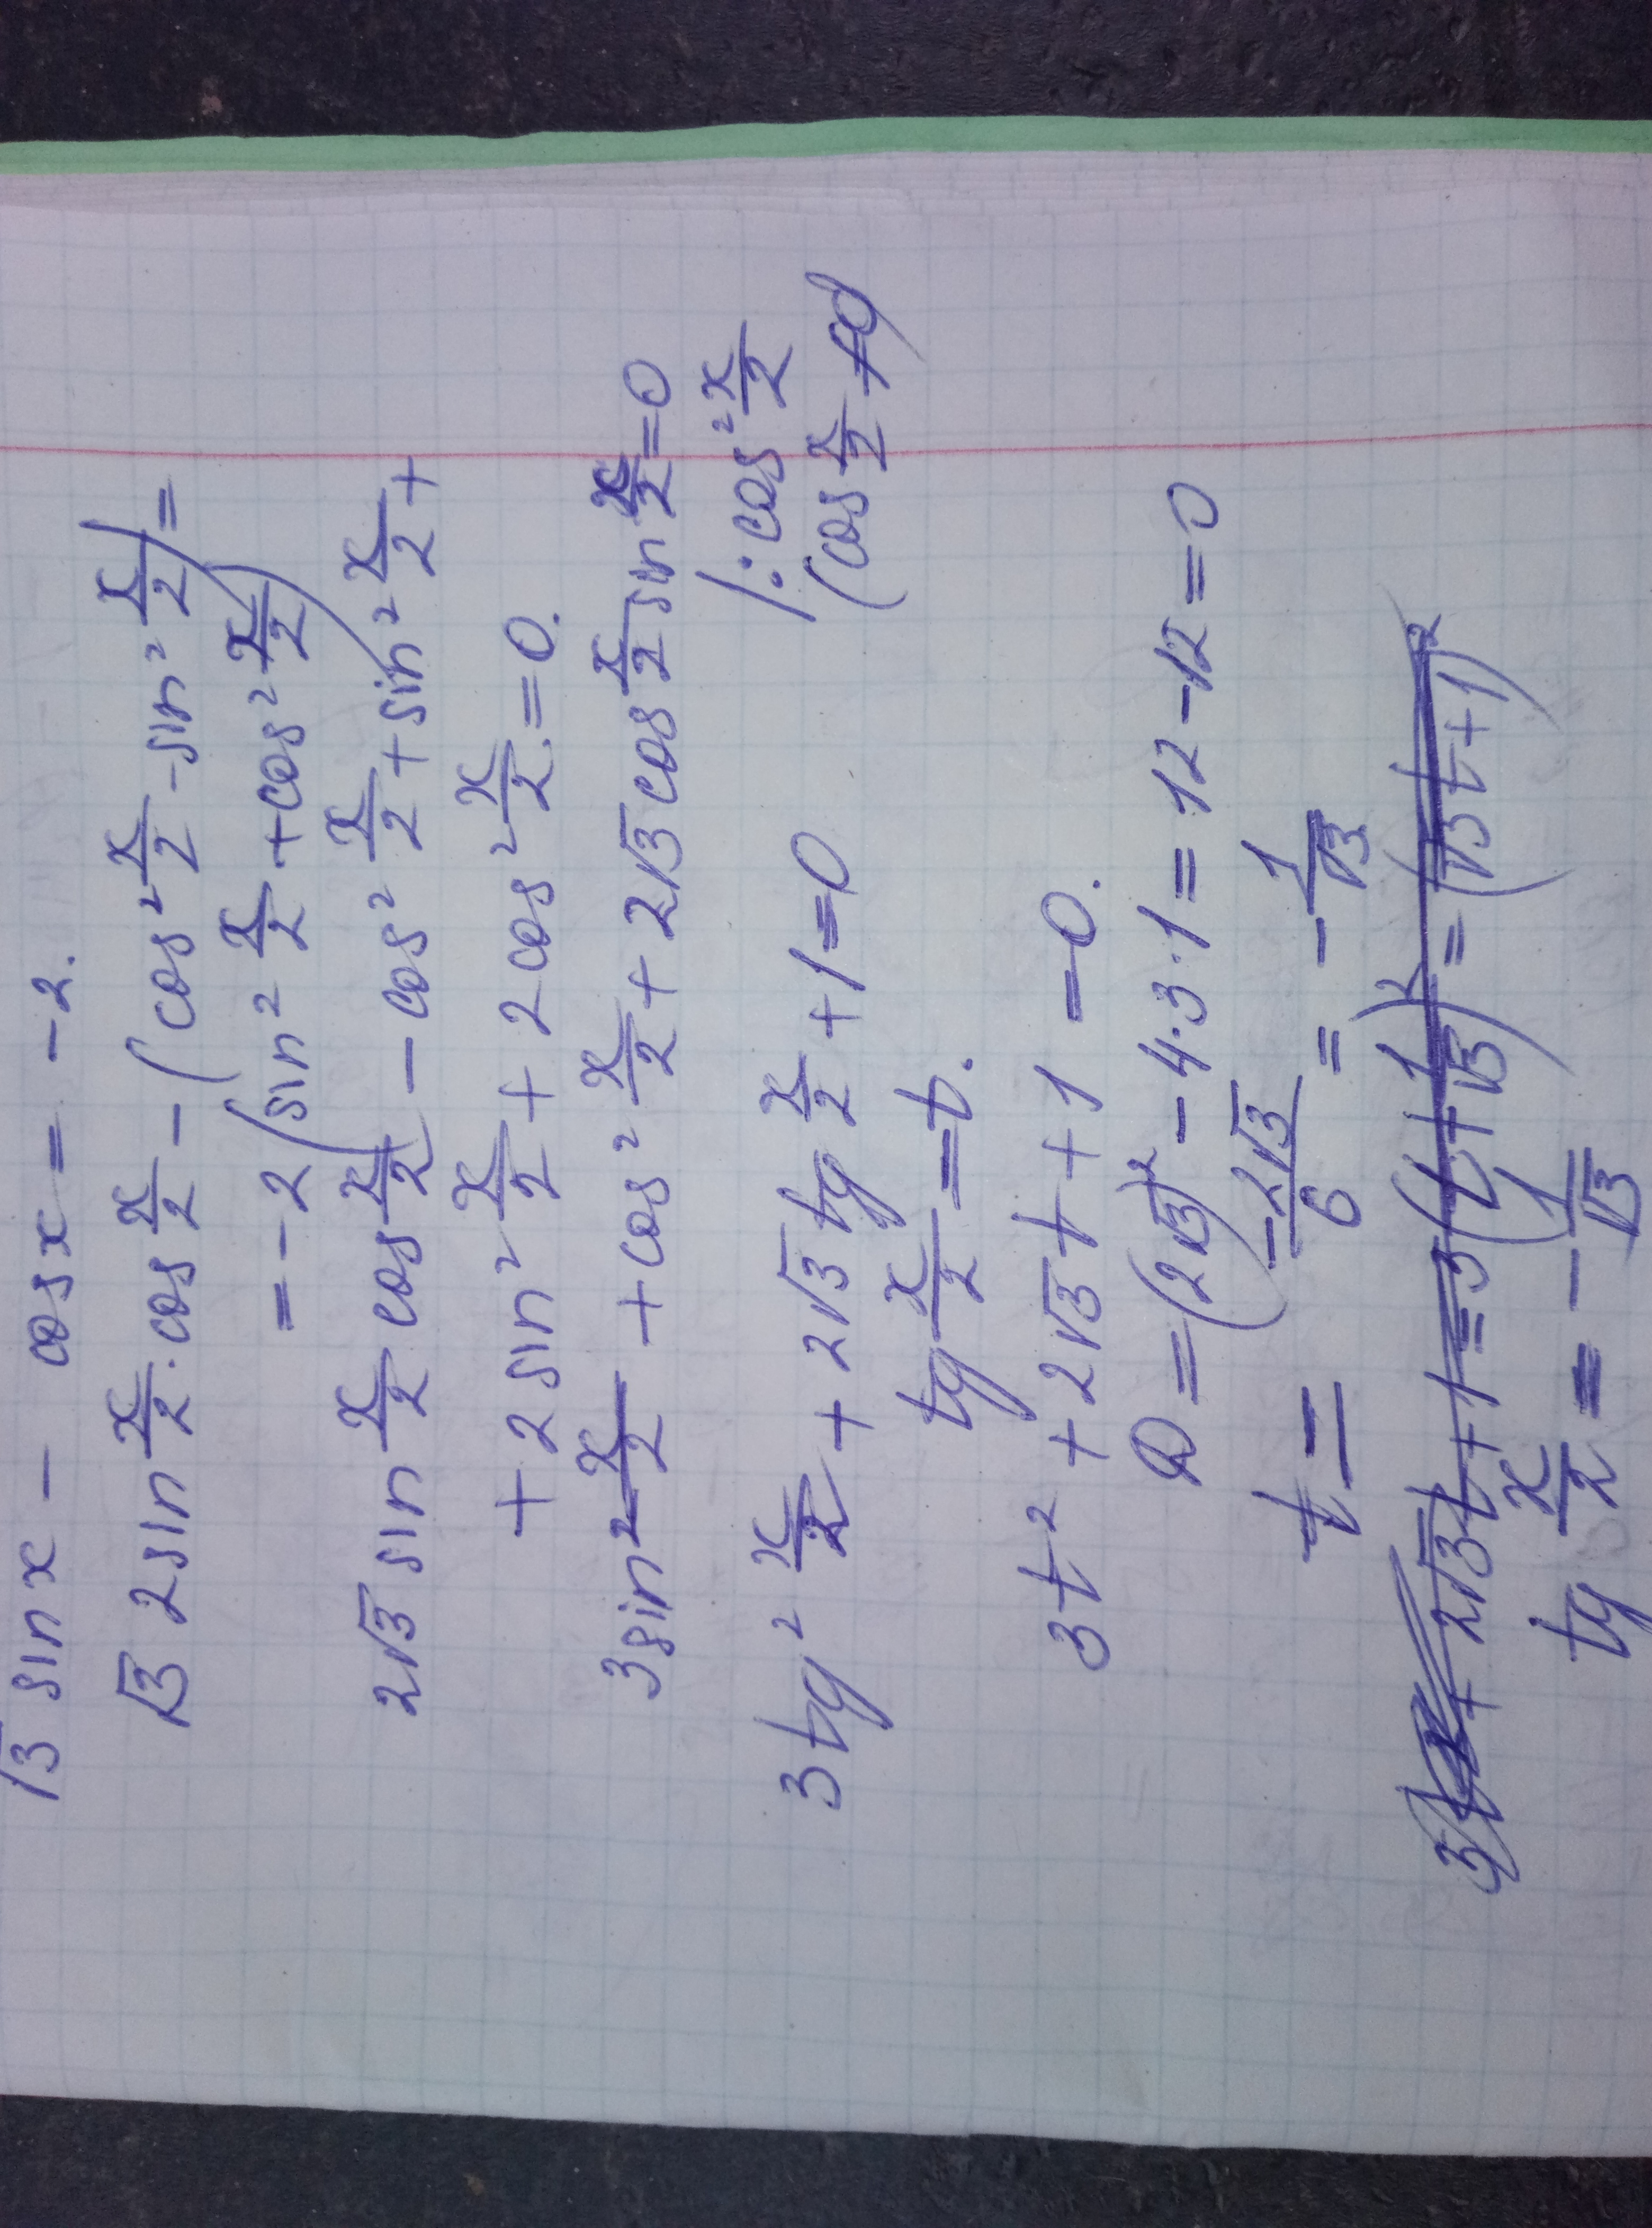 √3 sin x - cos x = -2.
√3 2sin x/2 · cos x/2 - (cos² x/2 - sin² x/2) =
= -2 (sin² x/2 + cos² x/2)
2√3 sin x/2 cos x/2 - cos² x/2 + sin² x/2 +
+ 2 sin² x/2 + 2 cos² x/2 = 0.
3 sin² x/2 + cos² x/2 + 2√3 cos x/2 sin x/2 = 0
/: cos² x/2
(cos x/2 ≠ 0)
3 tg² x/2 + 2√3 tg x/2 + 1 = 0
tg x/2 = t.
3t² + 2√3 t + 1 = 0.
D = (2√3)² - 4·3·1 = 12 - 12 = 0
t = -2√3/6 = - 1/√3
+ 2√3t + 1 = 3(t + 1/√3)² = (√3t + 1)²
tg x/2 = - 1/√3